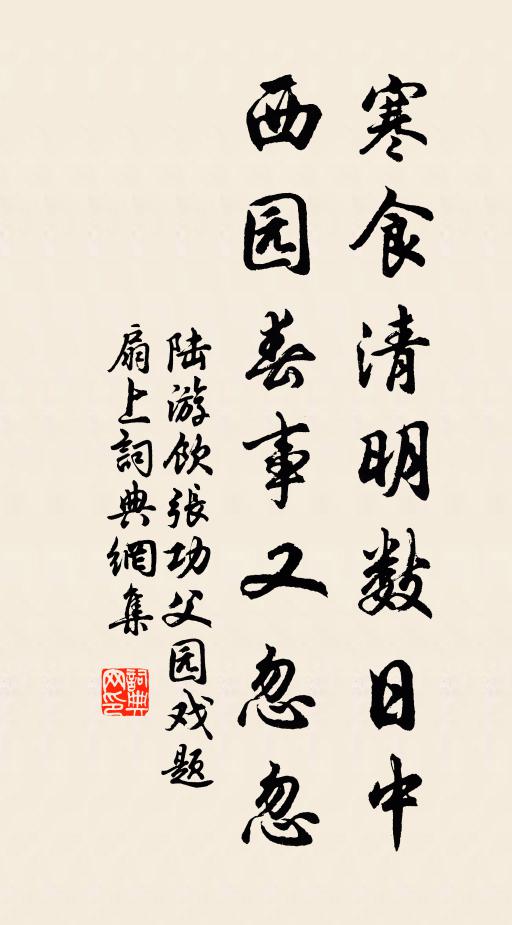 寒食清明数日中
西园春事又忽忽
陆游饮张功父园戏题
扇上詞典網集
詞典
网印